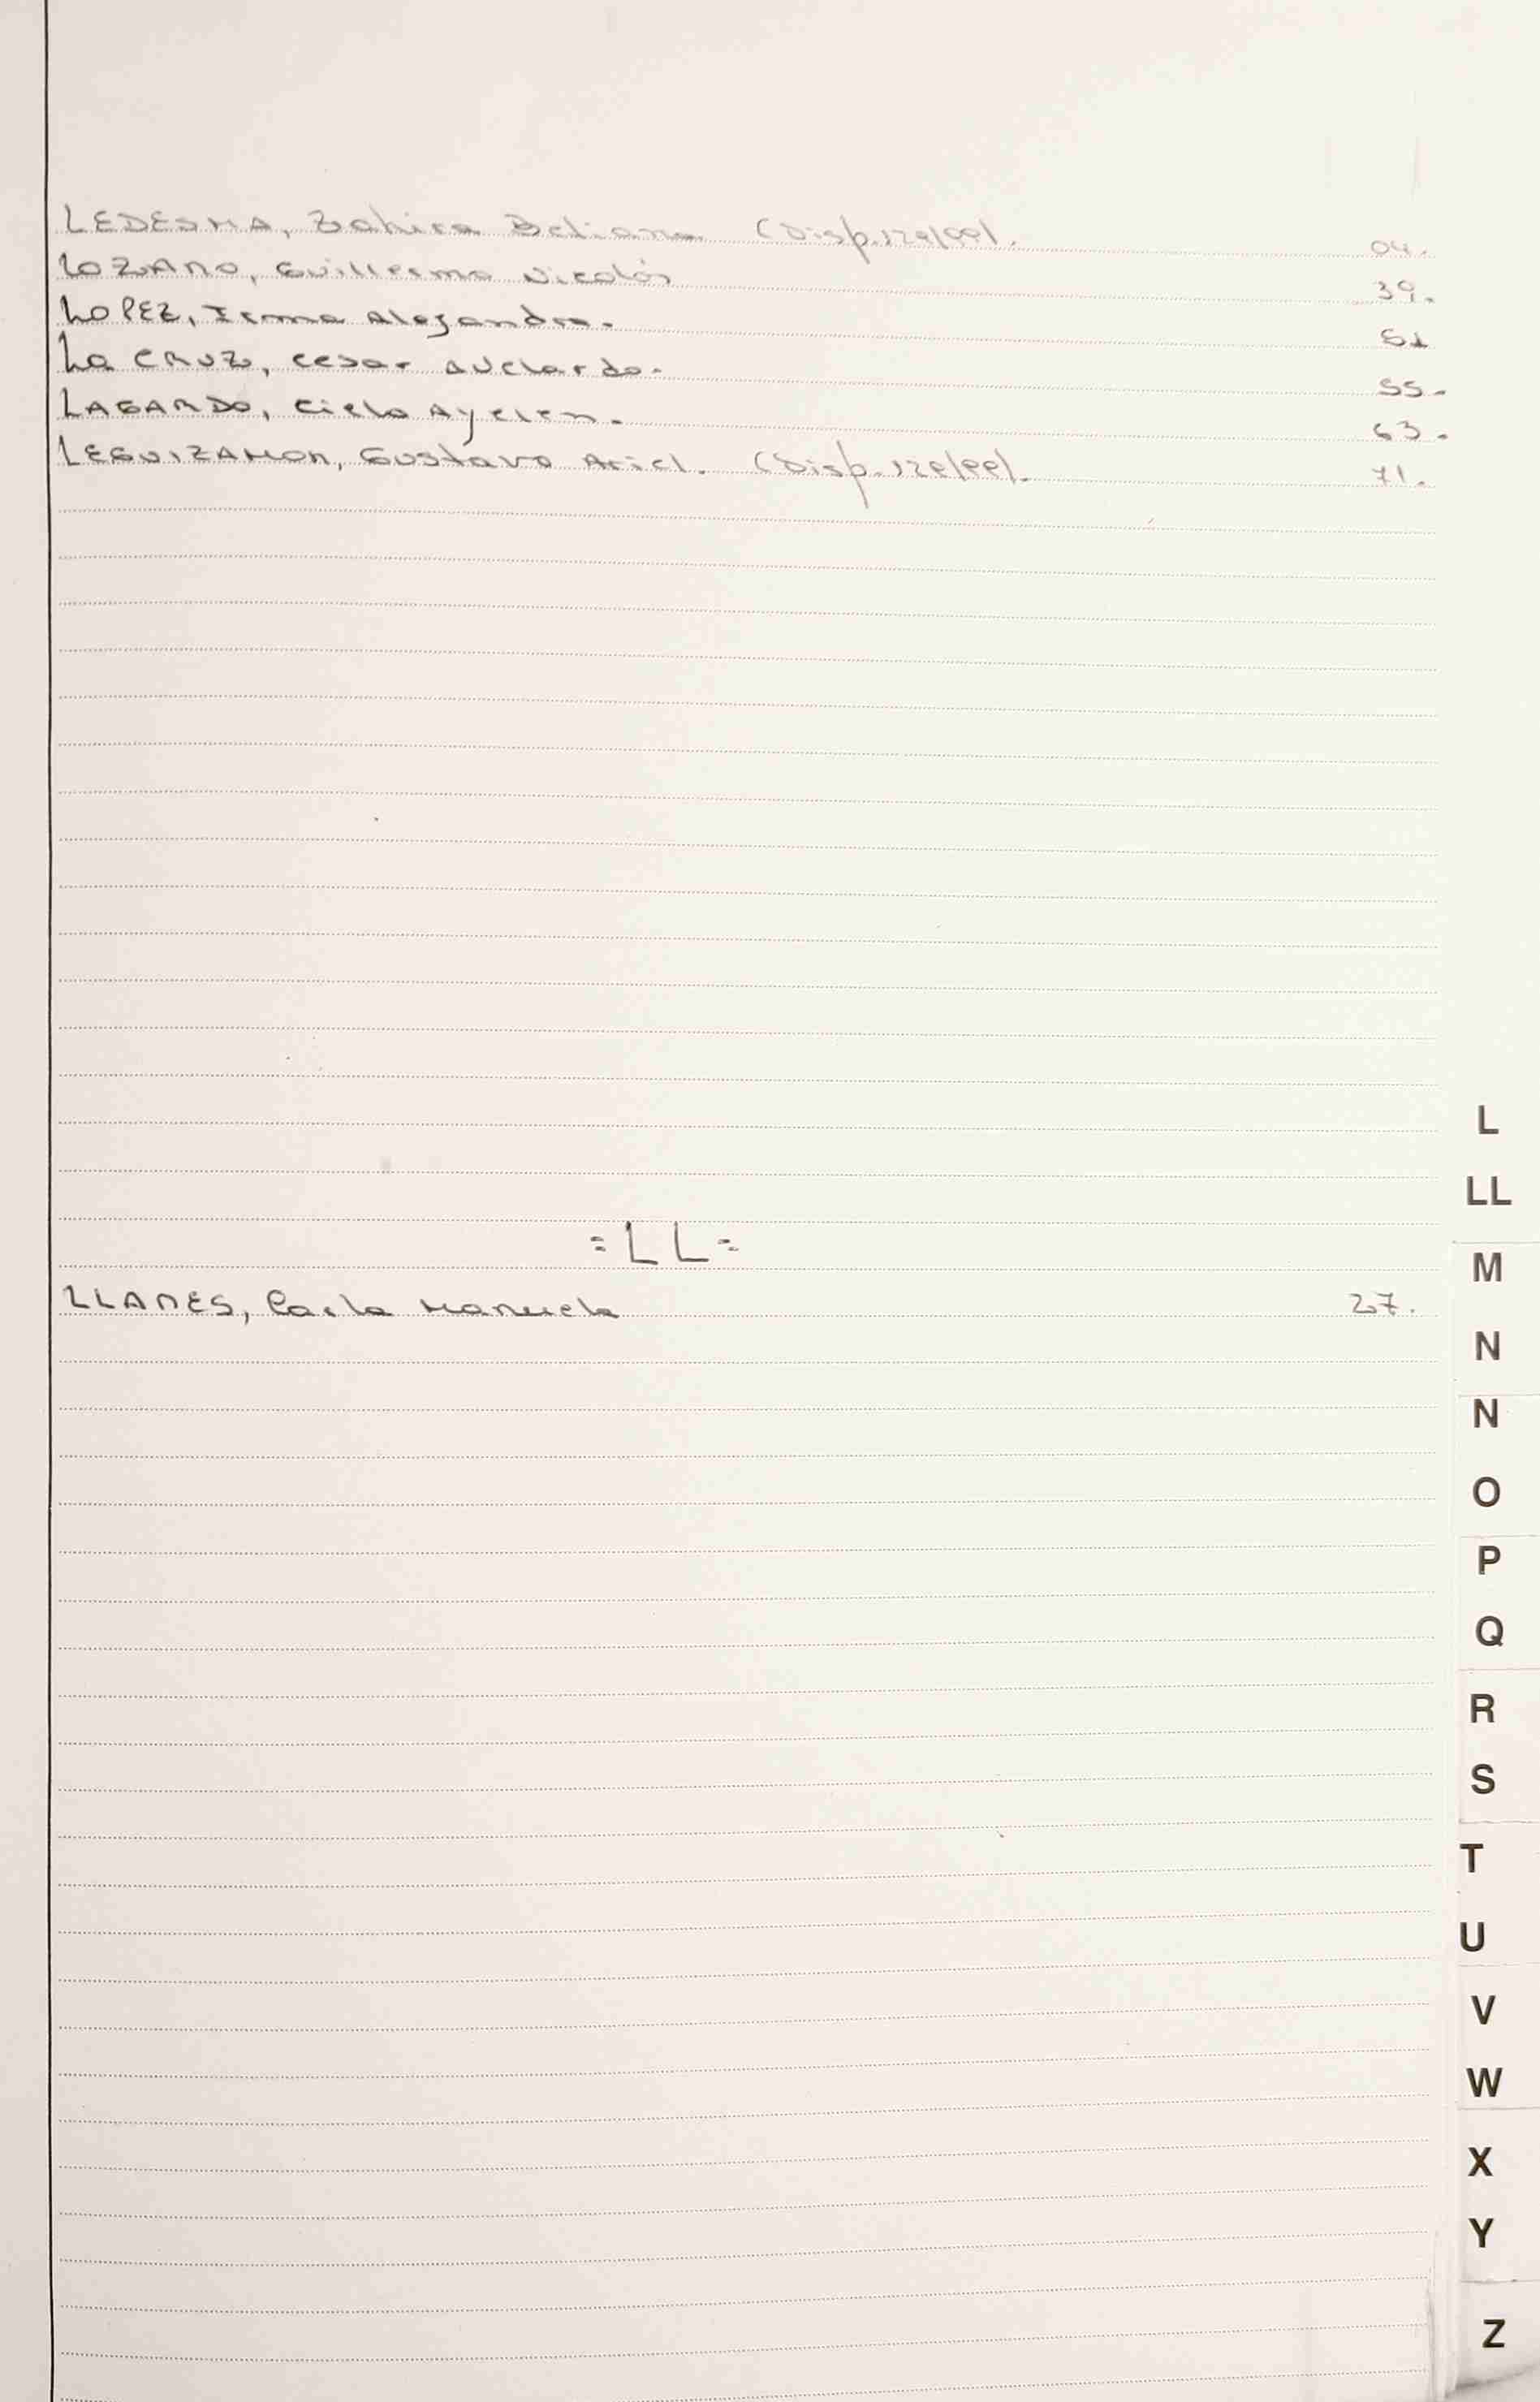 LEDESMA, Zahira Betiana (Disp. 129/99). 04.
LOZANO, Guillermo Nicolás 39.
LOPEZ, Irma Alejandra. 51
La CRUZ, Cesar Avelardo. 55.
LAGARDO, Cielo Ayelen. 63.
LEGUIZAMON, Gustavo Ariel. (Disp. 129/99). 71.
L
LL
=LL=
M
LLANES, Carla Manuela 27.
N
N
O
P
Q
R
S
T
U
V
W
X
Y
Z